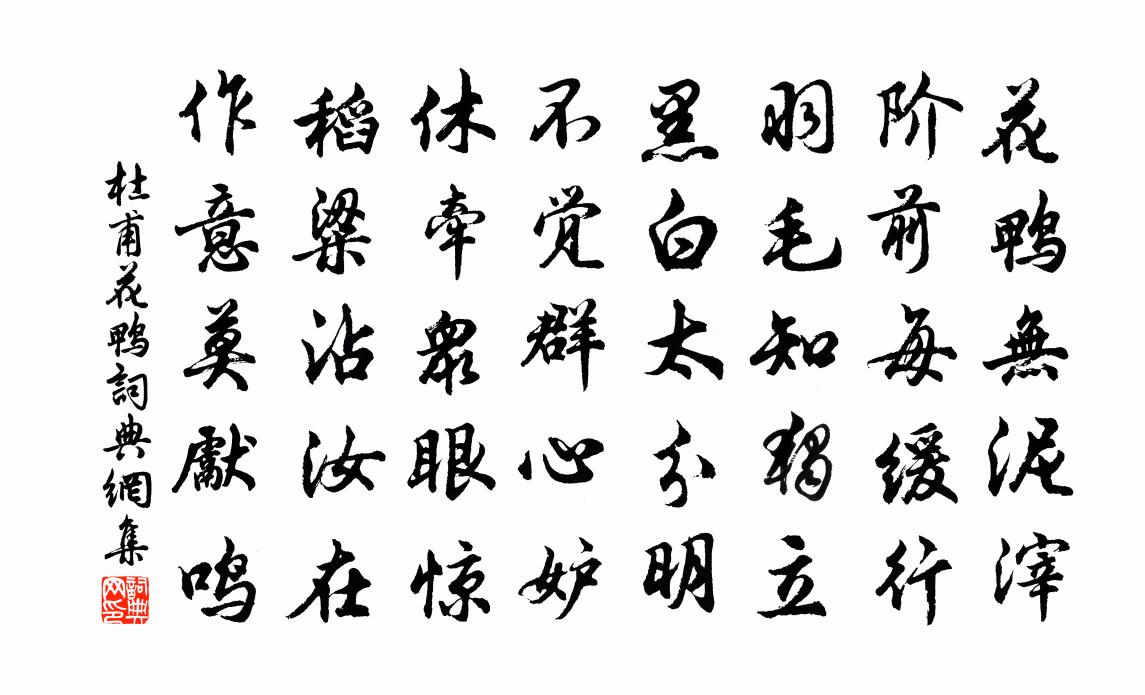 花鸭無泥滓
阶前每缓行
羽毛知独立
黑白太分明
不觉群心妒
休牵眾眼惊
稻粱沾汝在
作意莫獻鸣
杜甫花鴨詞典網集